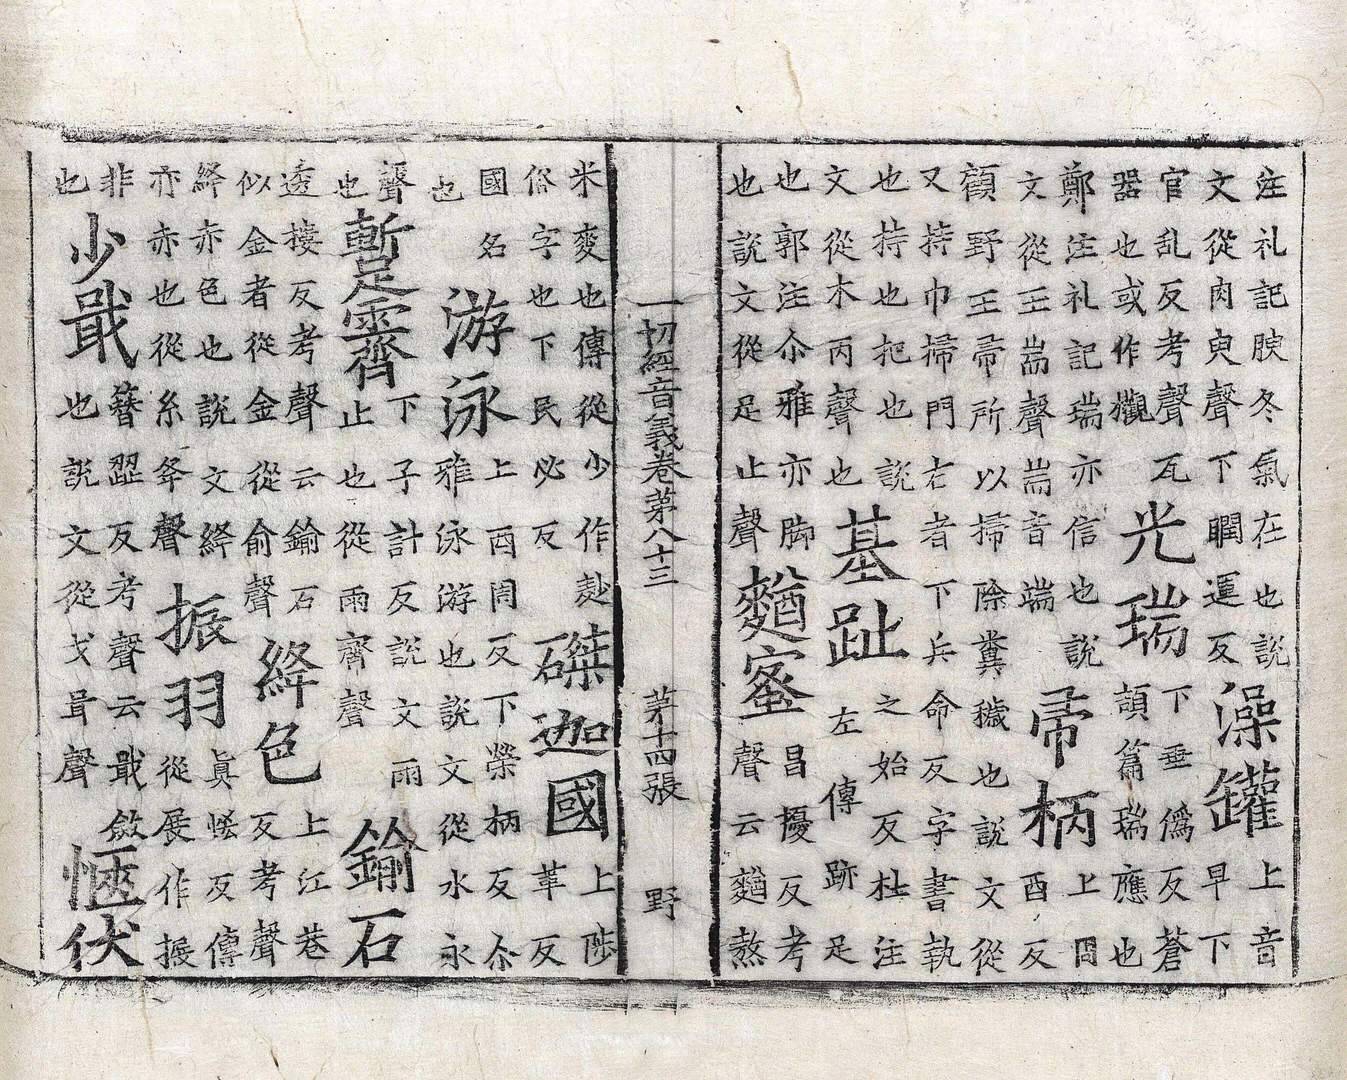 注礼記腴冬氣在也說
文從肉臾聲下瞤運反
澡罐
上音
早下
官乱反考聲瓦
器也或作鑵
光瑞
下垂僞反蒼
頡篇瑞應也
鄭注礼記瑞亦信也說
文從王耑聲耑音端
帚柄
上周
酉反
顧野王帚所以掃除糞穢也說文從
又持巾掃門右者下兵命反字書執
也持也把也說
文從木丙聲也
基趾
之始反杜注
左傳跡足
也郭注尒雅亦脚
也說文從足止聲
麨蜜
昌擾反考
聲云麨熬
一切經音義卷第八十三 第十四張 野
米麥也傳從少作麨
俗字也下民必反
磔迦國
上陟
革反
國名
也
游泳
上酉周反下榮柄反尒
雅泳游也說文從水永
聲
也
蹔霽
下子計反說文雨
止也從雨齊聲
鍮石
透摟反考聲云鍮石
似金者從金俞聲
絳色
上江巷
反考聲
絳赤色也說文絳
亦赤也從糸夅聲
振羽
眞慎反傳
從展作振
非
也
少戢
簪澀反考聲云戢斂
也說文從戈咠聲
愜伏